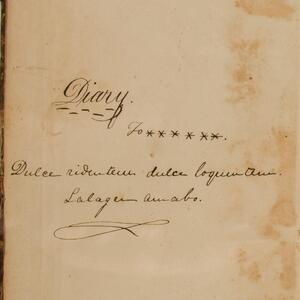 Diary.
To ××××××.
Dulce ridentem dulce loquentem.
Lalagen amabo.